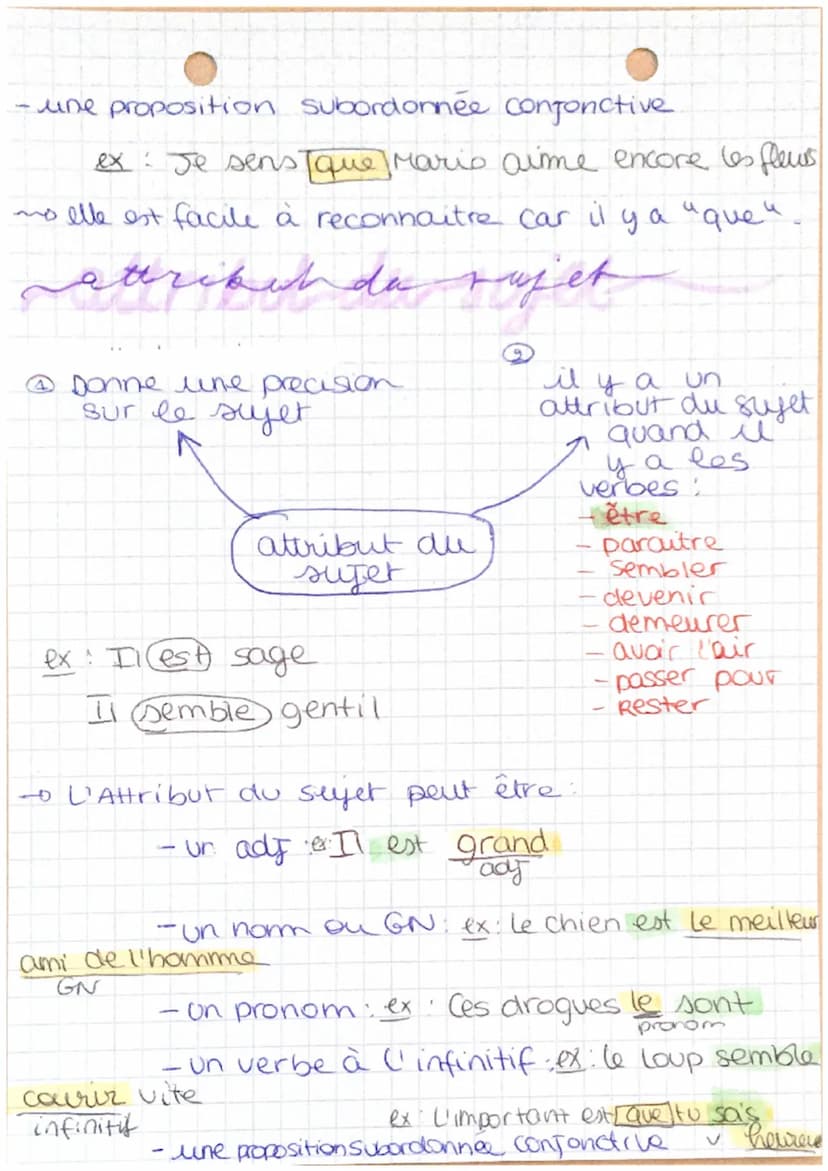 - une proposition subordonnée conjonctive
ex : Je sens que Mario aime encore les fleurs
→ elle est facile à reconnaitre car il y a "que".
attribut du sujet
① Donne une precision
sur le sujet
②
il y a un
attribut du sujet
quand il
y a les
verbes :
- être
- paraitre
- sembler
- devenir
- demeurer
- avoir l'air
- passer pour
- Rester
attribut du
sujet
ex : Il est sage
Il semble gentil
→ L'Attribut du sujet peut être :
- un adj : ex : Il est grand
adj
- un nom ou GN : ex : le chien est le meilleur
ami de l'homme
GN
- un pronom : ex : Ces drogues le sont
pronom
- un verbe à l'infinitif : ex : le loup semble
courir vite
infinitif
ex : L'important est que tu sois
- une proposition subordonnée conjonctive